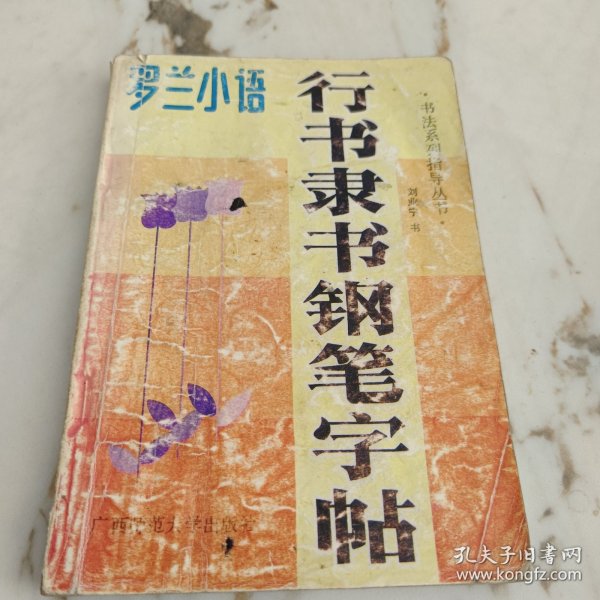 罗兰小语
行书隶书钢笔字帖
·书法系列指导丛书·
刘业宁 书
广西师范大学出版社
孔夫子旧书网
www.kongfz.com